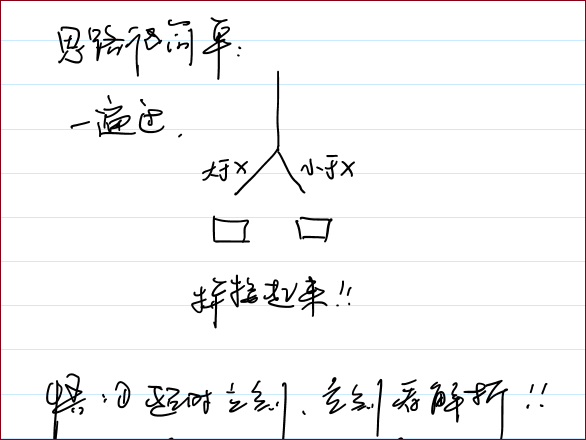 思路很简单:
一遍过.
大于X 小于X
拼接起来!!
悟:①超时立刻、立刻看解析!!